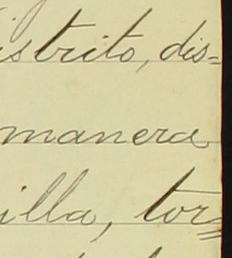 istrito, dis=
manera
illa, tor=